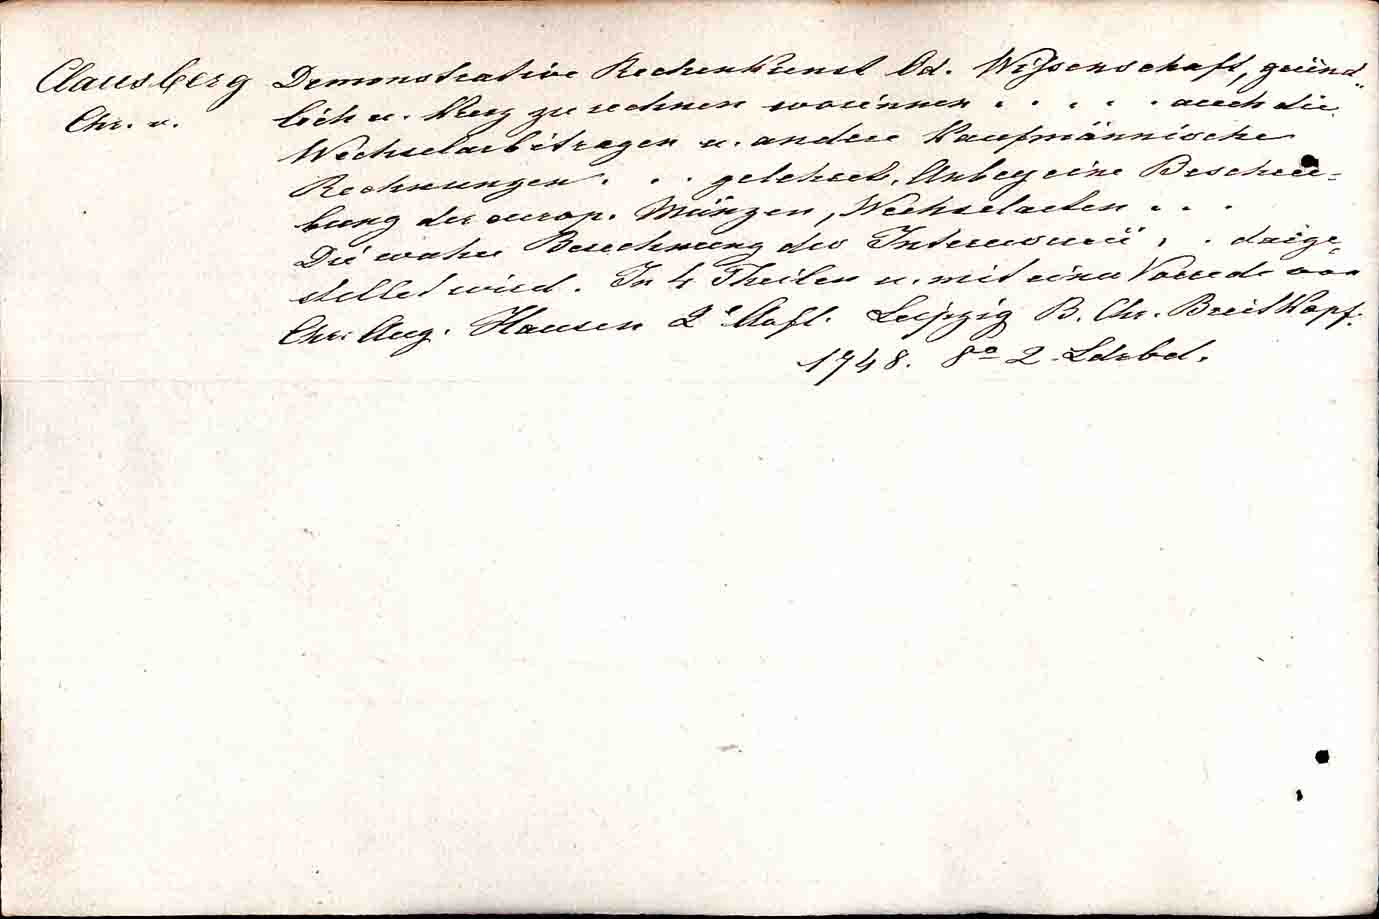 Clausberg Demonstrative Rechenkunst od. Wissenschaft, gründ-
Chr. v. lich u. kurz zu rechnen worinnen . . . . . auch die
Wechselarbitragen u. andere Kaufmännische
Rechnungen . . . gelehret, Anbey eine Beschrei=
bung der europ. Münzen, Wechselarten . . .
Die wahre Berechnung des Interusurii . . darge=
stellet wird. In 4 Theilen u. mit einer Vorrede von
Chr. Aug. Hausen 2e Aufl. Leipzig B. Chr. Breitkopf.
1748. 8o 2 Ldrbd.